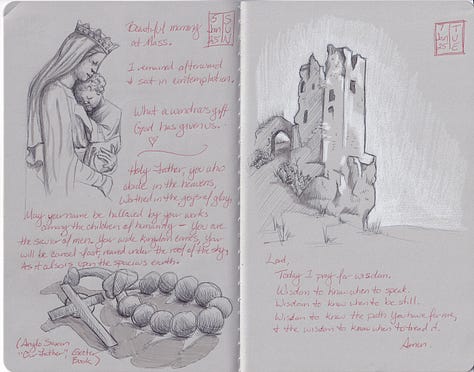 Beautiful morning
at Mass.
5
Jan
25
SUN
I remained afterward
& sat in contemplation.
What a wondrous gift
God has given us.
Holy Father, you who
abide in the heavens,
Worthed in the joys of glory,
May your name be hallowed by your works
among the children of humanity – You are
the savior of men. Your wide kingdom comes, Your
will be carved fast, reared under the roof of the skys
As it also is upon the spacious earth.
(Anglo Saxon
"Our Father", Exeter
Book)
7
Jan
25
TUE
Lord,
Today I pray for wisdom.
Wisdom to know when to speak.
Wisdom to know when to be still.
Wisdom to know the path You have for me,
& the wisdom to know when to tread it.
Amen.